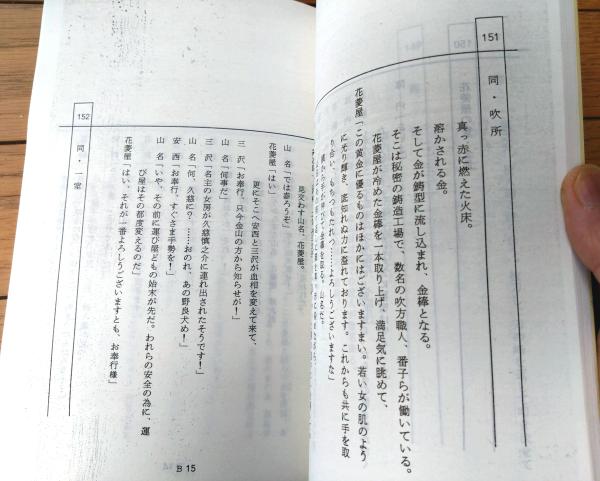 151
同・吹所
真っ赤に燃えた火床。
溶かされる金。
そして金が鋳型に流し込まれ、金棒となる。
そこは秘密の鋳造工場で、数名の吹方職人、番子らが働いている。
花菱屋が冷めた金棒を一本取り上げ、満足気に眺めて、
花菱屋「この黄金に優るものはほかにはございますまい。若い女の肌のよう
に光り輝き、底知れぬ力に溢れております。これからも共に手を取
り合い、もちつもたれつ……よろしうございますな」
見交わす山名、花菱屋。
山　名「では参ろうぞ」
花菱屋「はい」
更にそこへ安西と三沢が血相を変えて来て、
三　沢「お奉行、只今金山の方から知らせが！」
山　名「何事だ」
三　沢「名主の女房が久慈慎之介に連れ出されたそうです！」
山　名「何、久慈に？……おのれ、あの野良犬め！」
安　西「お奉行、すぐさま手勢を！」
山　名「いや、その前に運び屋どもの始末が先だ。われらの安全の為に、運
び屋はその都度変えるのだ」
花菱屋「はい、それが一番よろしうございますとも、お奉行様」
152
同・一室
B 15